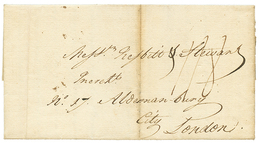 Messrs Nesbitt & Stewart
No. 17 Aldermanbury
City
London.